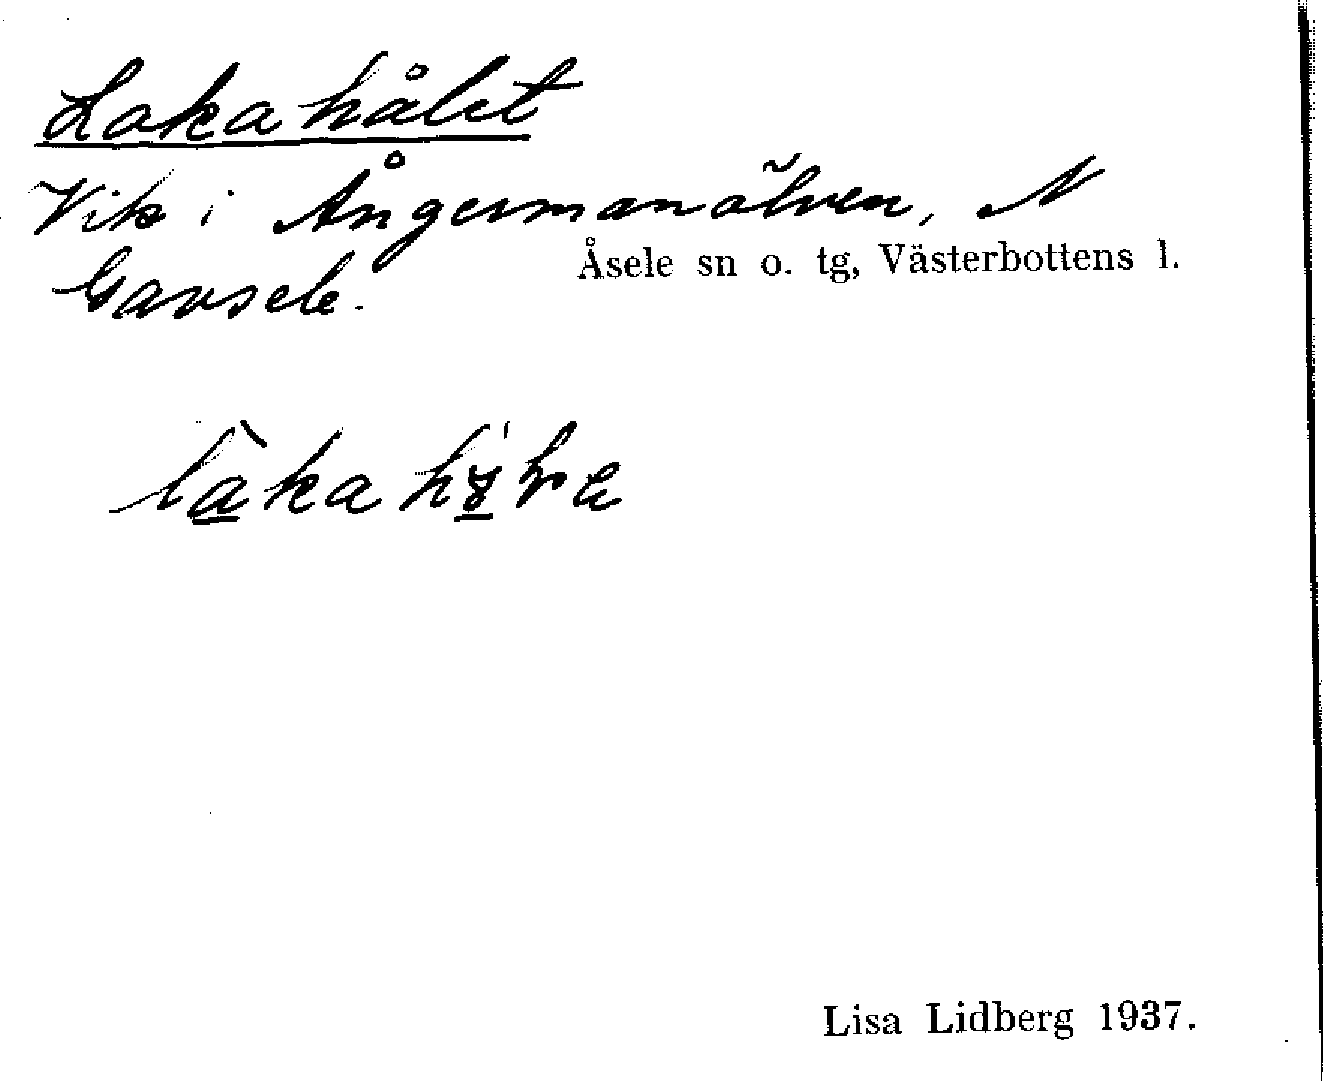 Lakahålet
Vik i Ångermanälven, N
Åsele sn o. tg, Västerbottens l.
Gavsele.
Lisa Lidberg 1937.